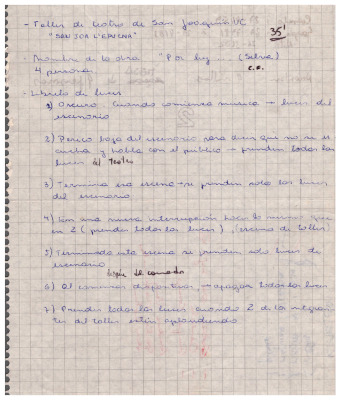 - Taller de teatro de San Joaquín UC
"SAN JOA L'ESCENA" 35'
- Nombre de la obra "Por ley ... (Selva)
4 personas c.c.
- Libreto de luces
1) Oscuro. Cuando comienza música → luces del
escenario
2) Perico baja del escenario para decir que no se
escucha y habla con el público → prenden todas las
luces del teatro
3) Termina esa escena → se prenden solo las luces
del escenario
4) Con una nueva interrupción hacer lo mismo que
en 2 (prender todas las luces) (escena de taller)
5) Terminada esta escena se prenden solo luces de
escenario
6) Al comenzar diapositivas → apagar todas las luces
7) Prender todas las luces cuando 2 de los integran-
tes del taller están aplaudiendo